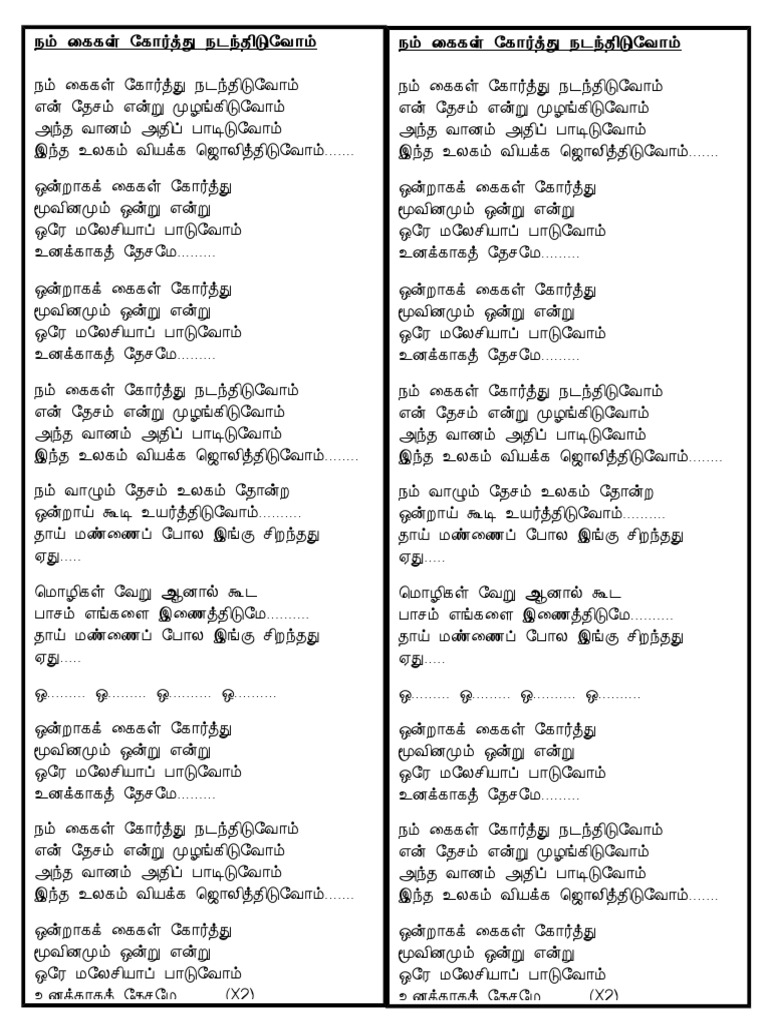 நம் கைகள் கோர்த்து நடந்திடுவோம்
நம் கைகள் கோர்த்து நடந்திடுவோம்
என் தேசம் என்று முழங்கிடுவோம்
அந்த வானம் அதிப் பாடிடுவோம்
இந்த உலகம் வியக்க ஜொலித்திடுவோம்.......
ஒன்றாகக் கைகள் கோர்த்து
மூவினமும் ஒன்று என்று
ஒரே மலேசியாப் பாடுவோம்
உனக்காகத் தேசமே.........
ஒன்றாகக் கைகள் கோர்த்து
மூவினமும் ஒன்று என்று
ஒரே மலேசியாப் பாடுவோம்
உனக்காகத் தேசமே.........
நம் கைகள் கோர்த்து நடந்திடுவோம்
என் தேசம் என்று முழங்கிடுவோம்
அந்த வானம் அதிப் பாடிடுவோம்
இந்த உலகம் வியக்க ஜொலித்திடுவோம்........
நம் வாழும் தேசம் உலகம் தோன்ற
ஒன்றாய் கூடி உயர்த்திடுவோம்..........
தாய் மண்ணைப் போல இங்கு சிறந்தது
ஏது.....
மொழிகள் வேறு ஆனால் கூட
பாசம் எங்களை இணைத்திடுமே..........
தாய் மண்ணைப் போல இங்கு சிறந்தது
ஏது.....
ஒ......... ஒ......... ஒ.......... ஒ..........
ஒன்றாகக் கைகள் கோர்த்து
மூவினமும் ஒன்று என்று
ஒரே மலேசியாப் பாடுவோம்
உனக்காகத் தேசமே.........
நம் கைகள் கோர்த்து நடந்திடுவோம்
என் தேசம் என்று முழங்கிடுவோம்
அந்த வானம் அதிப் பாடிடுவோம்
இந்த உலகம் வியக்க ஜொலித்திடுவோம்.......
ஒன்றாகக் கைகள் கோர்த்து
மூவினமும் ஒன்று என்று
ஒரே மலேசியாப் பாடுவோம்
உனக்காகத் தேசமே (X2)
நம் கைகள் கோர்த்து நடந்திடுவோம்
நம் கைகள் கோர்த்து நடந்திடுவோம்
என் தேசம் என்று முழங்கிடுவோம்
அந்த வானம் அதிப் பாடிடுவோம்
இந்த உலகம் வியக்க ஜொலித்திடுவோம்.......
ஒன்றாகக் கைகள் கோர்த்து
மூவினமும் ஒன்று என்று
ஒரே மலேசியாப் பாடுவோம்
உனக்காகத் தேசமே.........
ஒன்றாகக் கைகள் கோர்த்து
மூவினமும் ஒன்று என்று
ஒரே மலேசியாப் பாடுவோம்
உனக்காகத் தேசமே.........
நம் கைகள் கோர்த்து நடந்திடுவோம்
என் தேசம் என்று முழங்கிடுவோம்
அந்த வானம் அதிப் பாடிடுவோம்
இந்த உலகம் வியக்க ஜொலித்திடுவோம்........
நம் வாழும் தேசம் உலகம் தோன்ற
ஒன்றாய் கூடி உயர்த்திடுவோம்..........
தாய் மண்ணைப் போல இங்கு சிறந்தது
ஏது.....
மொழிகள் வேறு ஆனால் கூட
பாசம் எங்களை இணைத்திடுமே..........
தாய் மண்ணைப் போல இங்கு சிறந்தது
ஏது.....
ஒ......... ஒ......... ஒ.......... ஒ..........
ஒன்றாகக் கைகள் கோர்த்து
மூவினமும் ஒன்று என்று
ஒரே மலேசியாப் பாடுவோம்
உனக்காகத் தேசமே.........
நம் கைகள் கோர்த்து நடந்திடுவோம்
என் தேசம் என்று முழங்கிடுவோம்
அந்த வானம் அதிப் பாடிடுவோம்
இந்த உலகம் வியக்க ஜொலித்திடுவோம்.......
ஒன்றாகக் கைகள் கோர்த்து
மூவினமும் ஒன்று என்று
ஒரே மலேசியாப் பாடுவோம்
உனக்காகத் தேசமே (X2)